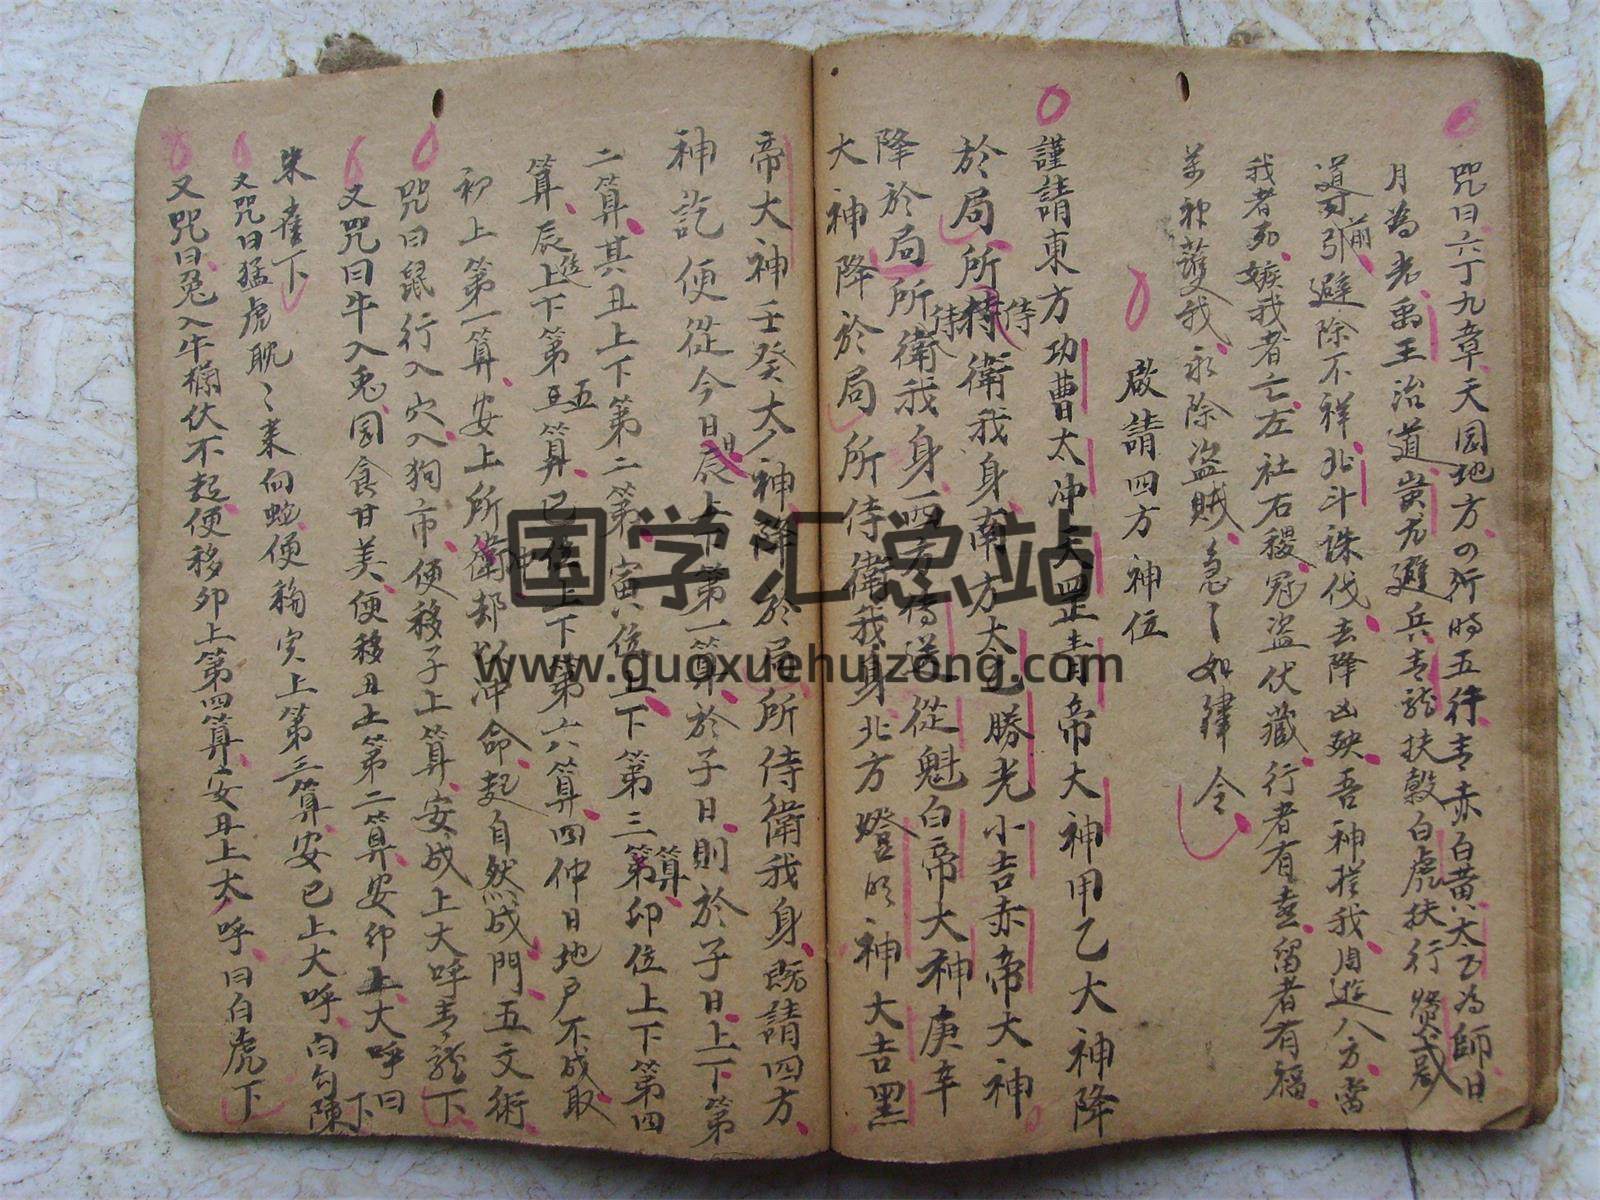 咒曰六丁九章天园地方四行時五行青赤白黄太乙為師日
月為光禹王治道蚩尤避兵青龙扶轂白虎扶行
導前引避除不祥北斗誅伐去降凶殃吾神撰我周遊八方當
我者死嫉我者亡左社右稷冦盗伏藏行者有喜留者有福
萬神護我永除盗贼急〻如律令
啟請四方神位
謹請東方功曹太冲天罡青帝大神甲乙大神降
於局所侍衛我身南方太乙勝光小吉赤帝大神
降於局所侍衛我身西方傳送從魁白帝大神庚辛
大神降於局所侍衛我身北方燈明神大吉黑
帝大神壬癸大神降於局所侍衛我身既請四方
神訖便從今日日辰上下第一算於子日則於子日上下第
二算其丑上下第二算寅位上下第三算卯位上下第四
算辰上下第五算巳位上下第六算四仲日地户不成取
初上第一算安上所衝却以冲命起自然成門五文術
咒曰鼠行入穴入狗市便移子上算安戌上大呼青龍下
又咒曰牛入兎园食甘美便移丑上第二算安卯上大呼曰
朱雀下
又咒曰猛虎耽〻来向蛇便移寅上第三算安巳上大呼曰勾陳下
又咒曰兔入牛欄伏不起便移卯上第四算安丑上大呼曰白虎下
国学汇总站
www.guoxuehuizong.com